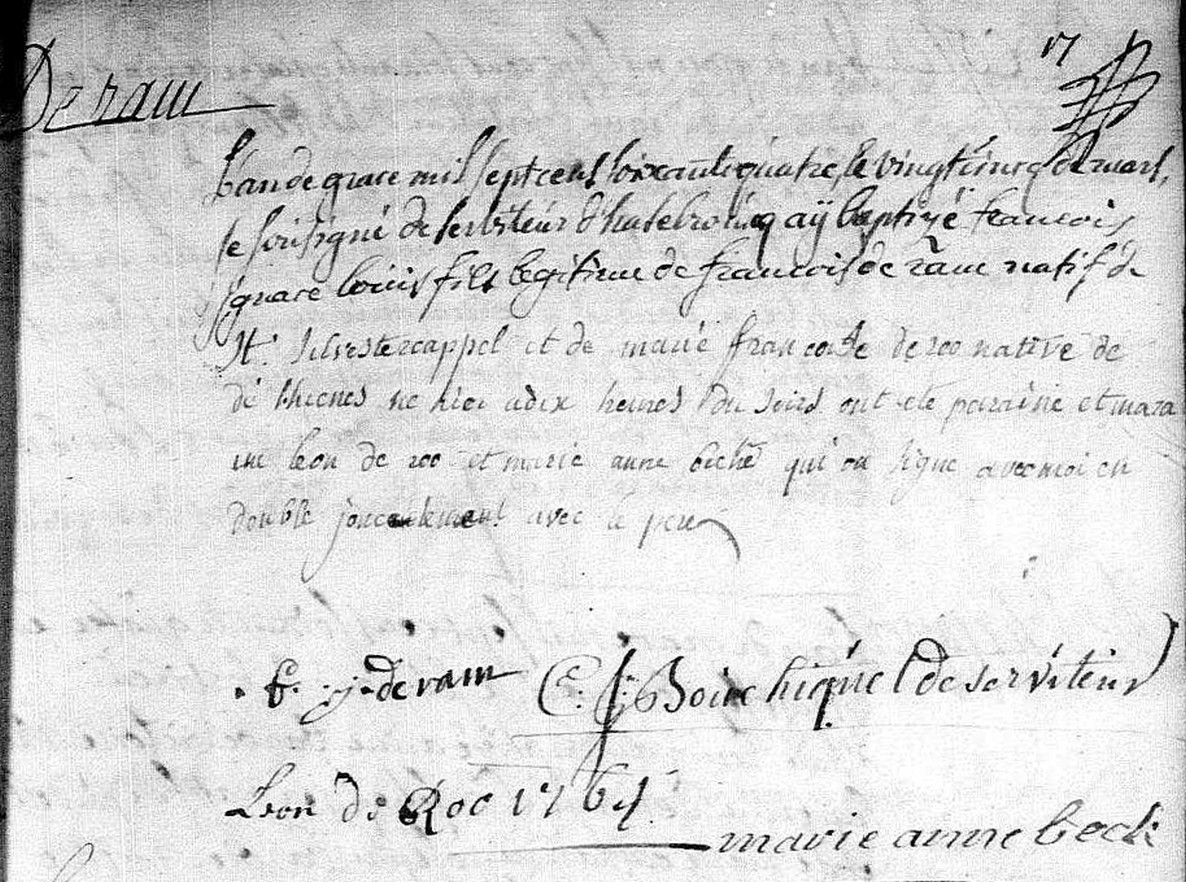 De ram
17
L'an de grace mil sept cent soixante quatre, le vingt cincq de mars,
je sousigné deserviteur d'hatebroucq aÿ baptizé francois
ignace louis fils legitime de francois de ram natif de
St. silvestercappel et de marie francoise de roo native de
de thienes ne hier a dix heures du soird ont ete paraine et mara
ine leon de roo et marie anne beck qui on signe avec moi en
double avec le pere
f. j. de ram C. f. deserviteur
Leon De Roo 1764
marie anne beck